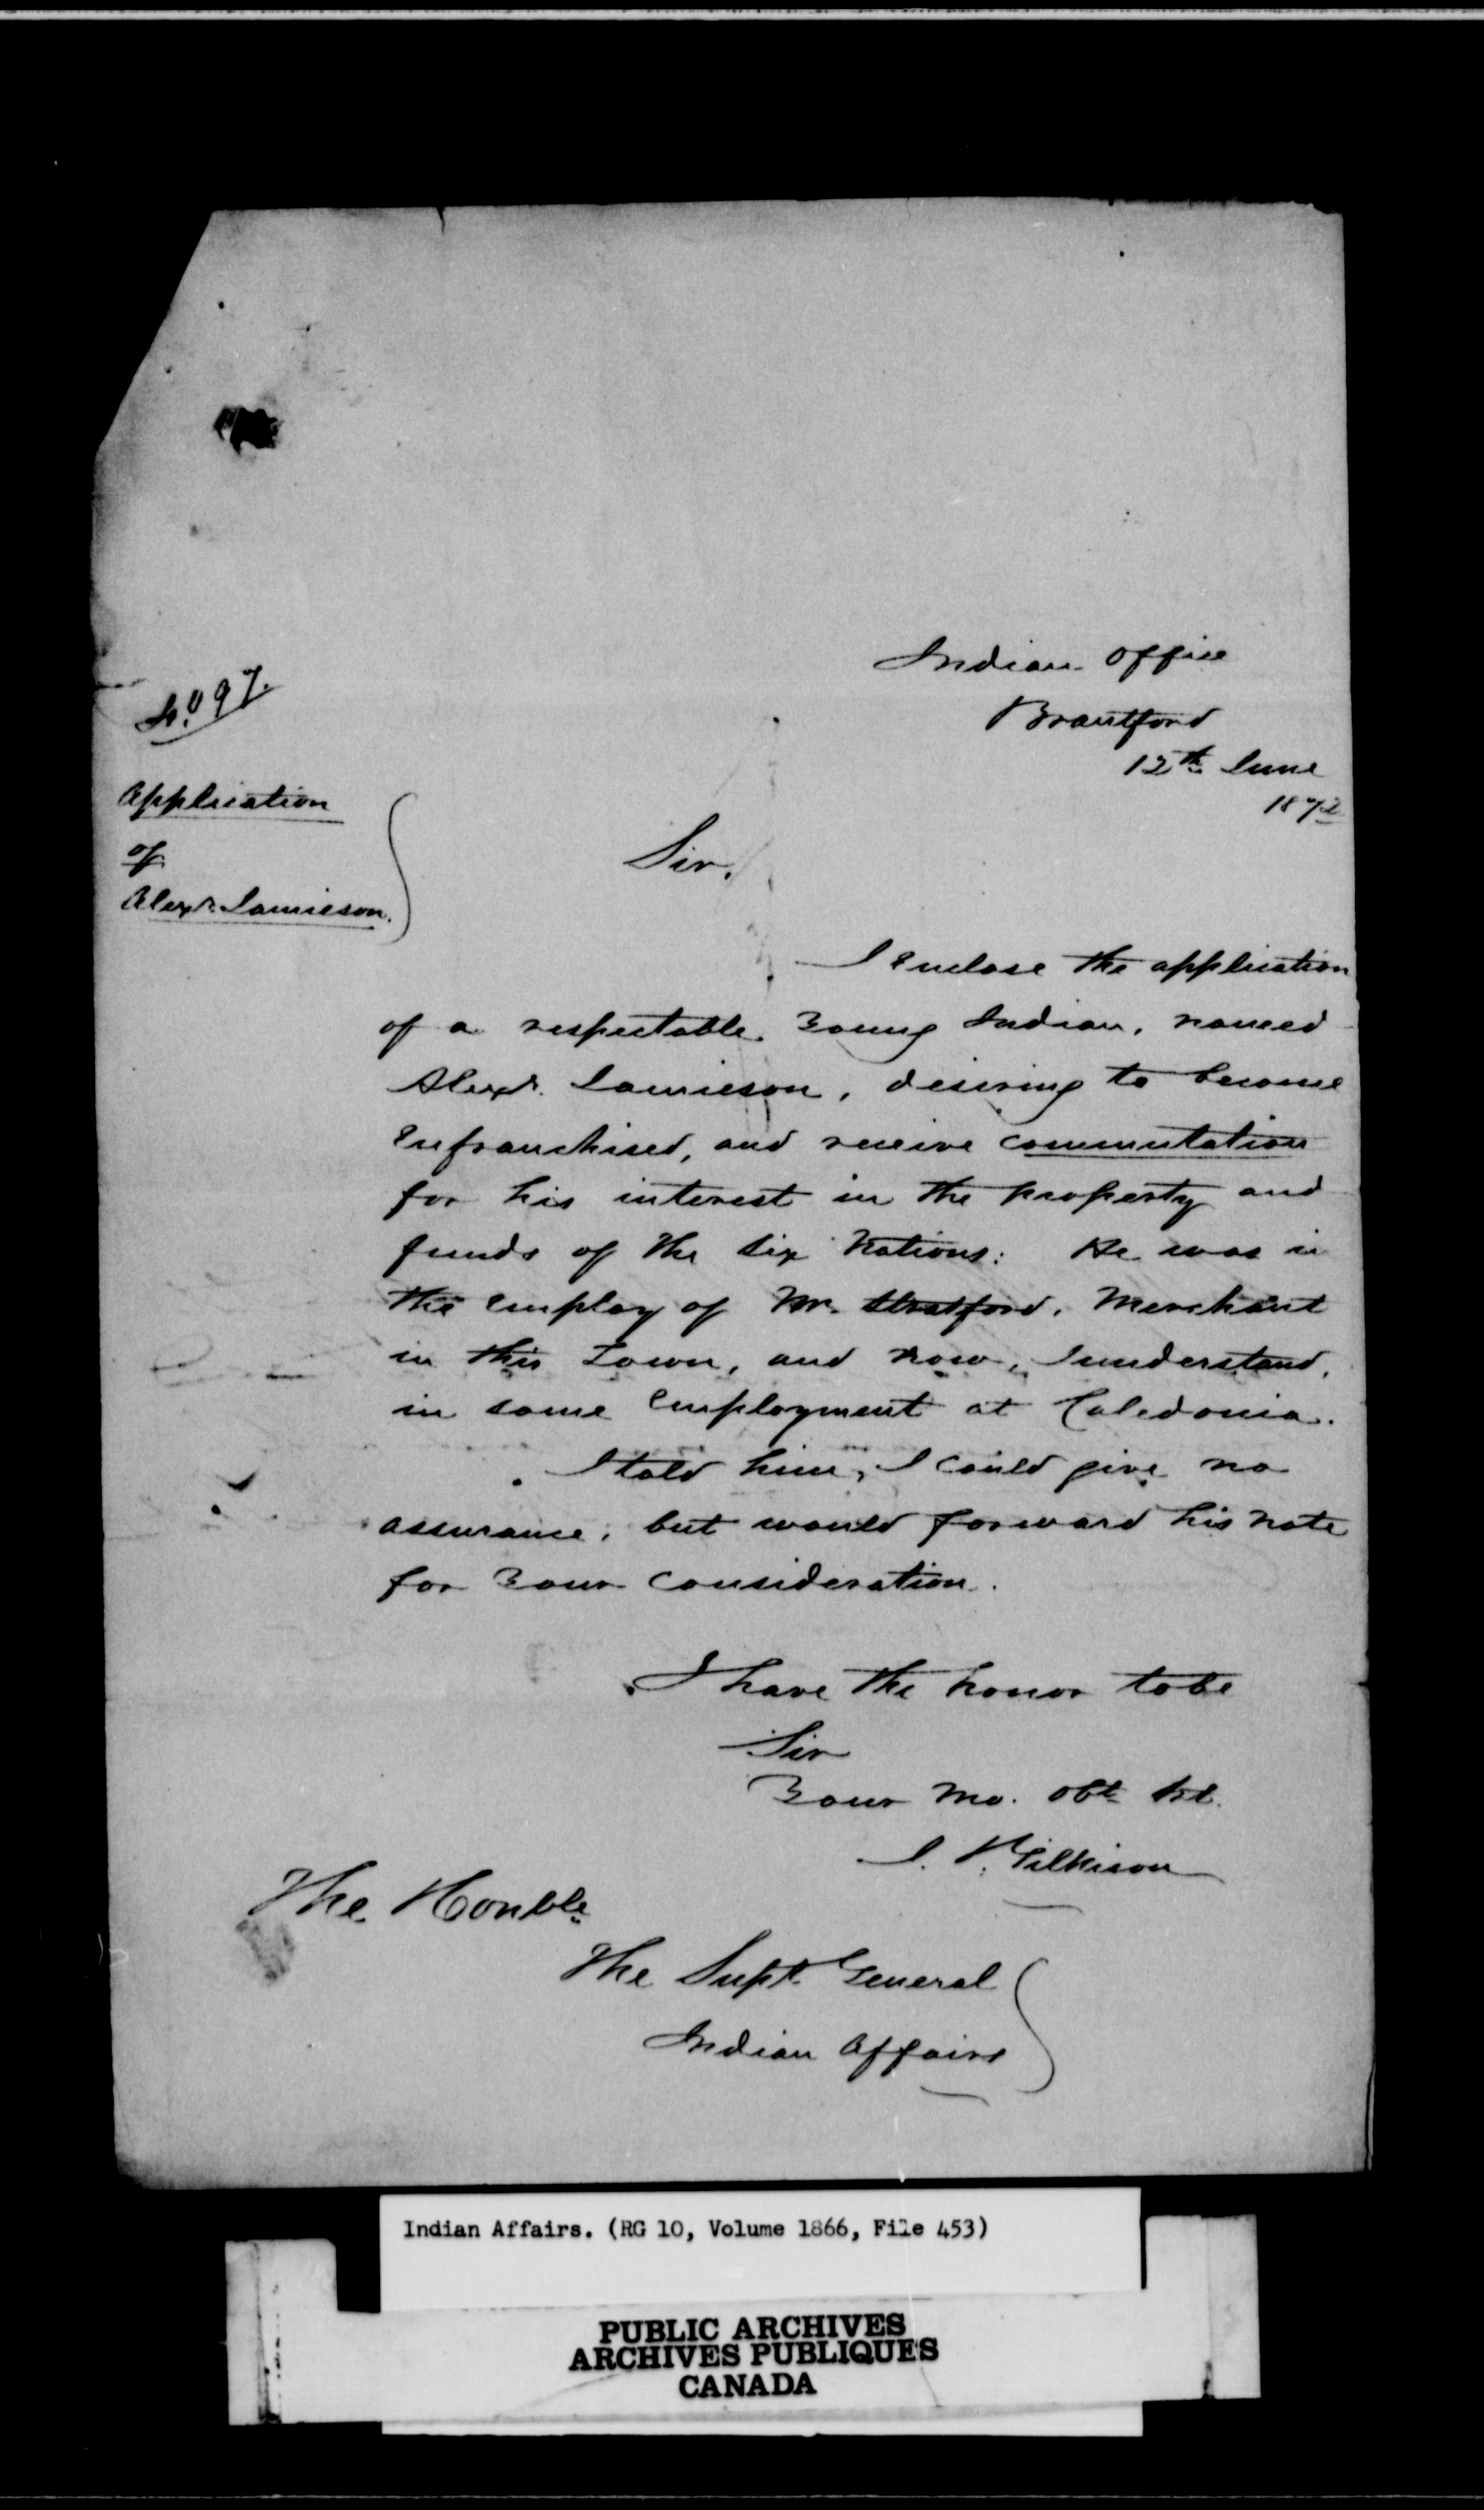 Indian Office
Brantford
12th June
1872
No 97.
Application
of
Alexr Jamieson.
Sir,
I enclose the application
of a respectable Young Indian, named
Alexr. Jamieson, desiring to become
Enfranchised, and receive commutation
for his interest in the property and
funds of the Six Nations: He was in
the employ of Mr. Stratford, Merchant
in this Town, and now, I understand,
in some Employment at Caledonia.
I told him, I could give no
assurance, but would forward his note
for Your Consideration.
I have the honor to be
Sir
Your Mo. Obt. St.
J. Gilkison
The Honble
The Supt. General
Indian Affairs
Indian Affairs. (RG 10, Volume 1866, File 453)
PUBLIC ARCHIVES
ARCHIVES PUBLIQUES
CANADA